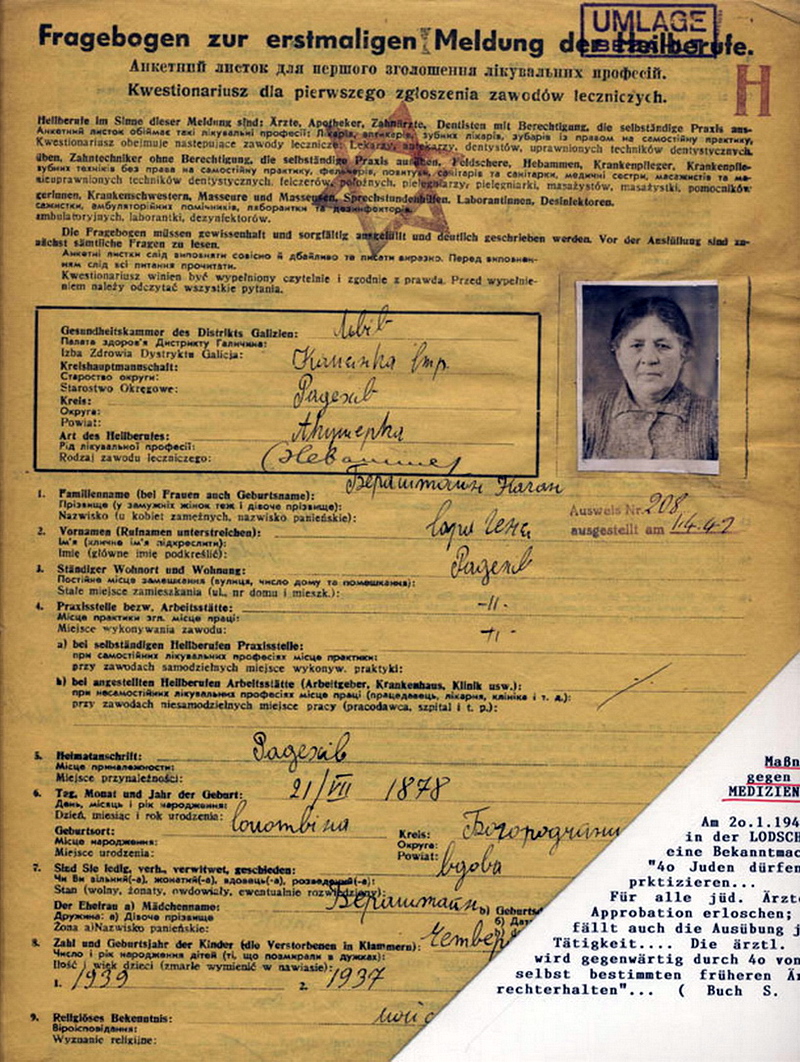 UMLAGE
Fragebogen zur erstmaligen Meldung der Heilberufe.
Анкетний листок для першого зголошення лікувальних професій.
Kwestionariusz dla pierwszego zgłoszenia zawodów leczniczych.
H
Heilberufe im Sinne dieser Meldung sind: Ärzte, Apotheker, Zahnärzte, Dentisten mit Berechtigung, die selbständige Praxis aus-
Анкетний листок обіймає такі лікувальні професії: Лікарів, аптикарів, зубних лікарів, зубарів із правом на самостійну практику,
Kwestionariusz obejmuje następujące zawody lecznicze: Lekarzy, aptekarzy, dentystów, uprawnionych techników dentystycznych,
üben, Zahntechniker ohne Berechtigung, die selbständige Praxis ausüben, Feldschere, Hebammen, Krankenpfleger, Krankenpfle-
зубних техніків без права на самостійну практику, фельчерів, повитух, санітарів та санітарки, медичні сестри, масажистів та ма-
nieuprawnionych techników dentystycznych, felczerów, położnych, pielęgniarzy, pielęgniarki, masażystów, masażystki, pomocników
gerinnen, Krankenschwestern, Masseure und Masseusen, Sprechstundenhilfen, Laborantinnen, Desinfektoren.
сажистки, амбуляторійних помічників, ляборантки та дезинфекторів.
ambulatoryjnych, laborantki, dezynfektorów.
Die Fragebogen müssen gewissenhaft und sorgfältig ausgefüllt und deutlich geschrieben werden. Vor der Ausfüllung sind zu-
nächst sämtliche Fragen zu lesen.
Анкетні листки слід виповняти совісно й дбайливо та писати виразно. Перед виповнен-
ням слід всі питання прочитати.
Kwestionariusz winien być wypełniony czytelnie i zgodnie z prawdą. Przed wypełnie-
niem należy odczytać wszystkie pytania.
Gesundheitskammer des Distrikts Galizien: Львів
Палата здоров'я Дистрикту Галичина:
Izba Zdrowia Dystryktu Galicja:
Kreishauptmannschaft: Камінка
Староство округи:
Starostwo Okręgowe:
Kreis: Радехів
Округа:
Powiat:
Art des Heilberufes: Акушерка
Рід лікувальної професії:
Rodzaj zawodu leczniczego:
1. Familienname (bei Frauen auch Geburtsname):
Прізвище (у замужніх жінок теж і дівоче прізвище):
Nazwisko (u kobiet zamężnych, nazwisko panieńskie):
Ausweis Nr. 208
ausgestellt am
2. Vornamen (Rufnamen unterstreichen):
Ім'я (кличне ім'я підкреслити):
Imię (główne imię podkreślić):
3. Ständiger Wohnort und Wohnung: Радехів
Постійне місце замешкання (вулиця, число дому та помешкання):
Stałe miejsce zamieszkania (ul., nr domu i mieszk.):
4. Praxisstelle bezw. Arbeitsstätte: -"-
Місце практики згл. місце праці:
Miejsce wykonywania zawodu: -"-
a) bei selbständigen Heilberufen Praxisstelle:
при самостійних лікувальних професіях місце практики:
przy zawodach samodzielnych miejsce wykonyw. praktyki:
b) bei angestellten Heilberufen Arbeitsstätte (Arbeitgeber, Krankenhaus, Klinik usw.):
при несамостійних лікувальних професіях місце праці (працедавець, лікарня, клініка і т. д.):
przy zawodach niesamodzielnych miejsce pracy (pracodawca, szpital i t. p.):
5. Heimatanschrift: Радехів
Місце приналежности:
Miejsce przynależności:
6. Tag, Monat und Jahr der Geburt: 21/VII 1878
День, місяць і рік народження:
Dzień, miesiąc i rok urodzenia:
Geburtsort: Kreis:
Місце народження: Округа:
Miejsce urodzenia: Powiat:
7. Sind Sie ledig, verh., verwitwet, geschieden: вдова
Чи Ви вільний(-а), жонатий(-а), вдовець(-а), розведений(-а):
Stan (wolny, żonaty, owdowiały, ewentualnie rozwiedziony):
Der Ehefrau a) Mädchenname:
Дружина: а) Дівоче прізвище
Żona a) Nazwisko panieńskie:
8. Zahl und Geburtsjahr der Kinder (die Verstorbenen in Klammern):
Число і рік народження дітей (ті, що позмирали в дужках):
Ilość i wiek dzieci (zmarłe wymienić w nawiasie):
1. 1939 2. 1937
9. Religiöses Bekenntnis:
Віроісповідання:
Wyznanie religijne:
Maßn
gegen
MEDIZIEN
Am 2o.1.194
in der LODSCH
eine Bekanntmac
"4o Juden dürfen
prktizieren...
Für alle jüd. Ärzt
Approbation erloschen;
fällt auch die Ausübung j
Tätigkeit.... Die ärztl.
wird gegenwärtig durch 4o von
selbst bestimmten früheren Är
rechterhalten"... ( Buch S.